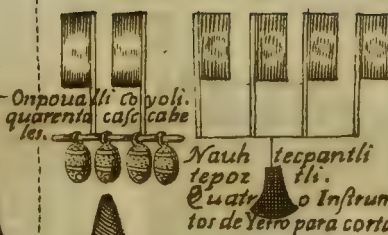 Onpoualli coyoli.
quarenta casc cabe
les.
Nauh tecpantli
tepoz tli.
Quatr o Inſtrum
tos de Yerro para corta